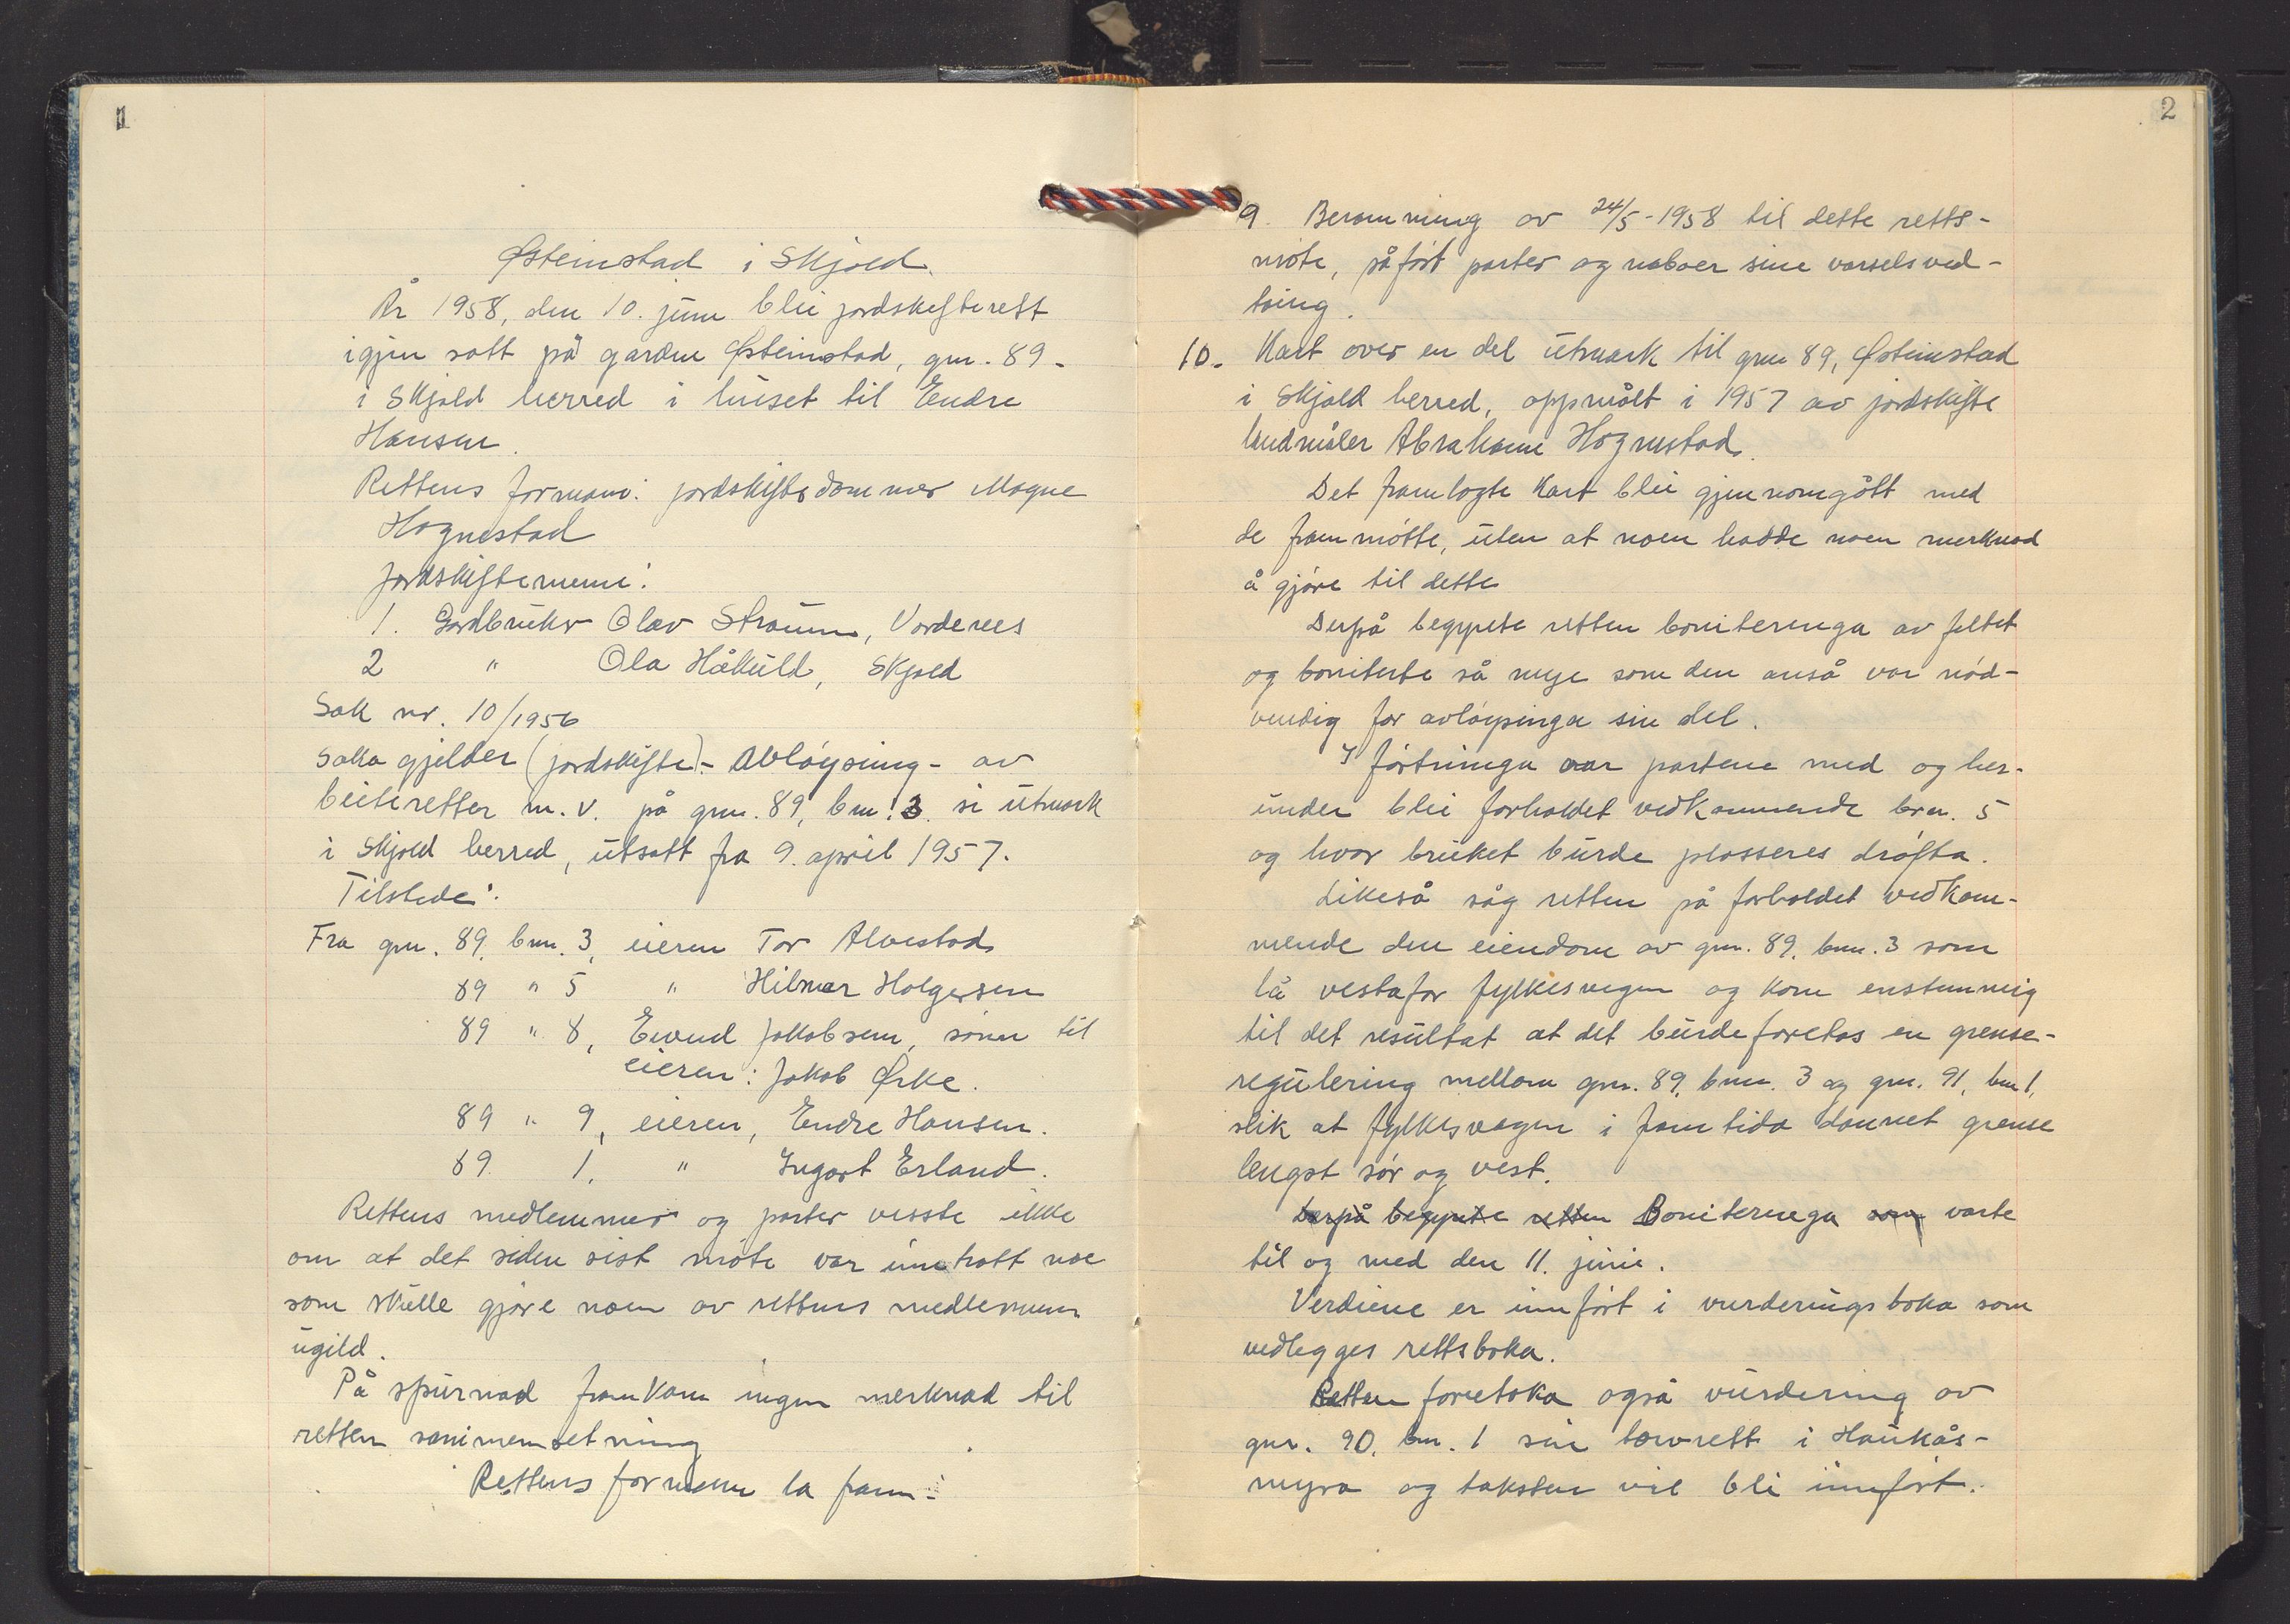 1
Østeinstad i Skjold.
År 1958, den 10. juni blei jordskifterett
igjen satt på garden Østeinstad, gnr. 89-
i Skjold herred i huset til Endre
Hansen.
Rettens formann: jordskiftedommer Magne
Hognestad
Jordskiftemenn:
1. Gardbruker Olav Straum, Vordenes
2 " Ola Håkuld, Skjold
Sak nr. 10/1956
Saka gjelder (jordskifte) - Avløysing - av
beiteretter m.v. på gnr. 89, bnr. 3. si utmark
i Skjold herred, utsatt fra 9. april 1957.
Tilstede:
Fra gnr. 89, bnr. 3, eieren Tor Alvestad
89 " 5 " Hilmar Holgersen
89 " 8, Eivind Jakobsen, sønn til
eieren: Jakob Ørke.
89 " 9, eieren, Endre Hansen.
89. 1, " Ingart Erland.
Rettens medlemmer og parter visste ikke
om at det siden sist møte var inntrått noe
som skulle gjøre noen av rettens medlemmer
ugild.
På spurnad framkom ingen merknad til
retten sammensetning
Rettens formann la fram:
2
9. Beramming av 24/5-1958 til dette retts-
møte, påført parter og naboer sine varselsved-
taing.
10. Kart over en del utmark til gnr 89, Østeinstad
i Skjold herred, oppmålt i 1957 av jordskifte
landmåler Abraham Hognestad.
Det framlagte kart blei gjennomgått med
de frammøtte, uten at noen hadde noen merknad
å gjøre til dette
Derpå begynte retten boniteringa av feltet
og boniterte så mye som den anså var nød-
vendig for avløysinga sin del.
Iførtninga var partene med og her-
under blei forholdet vedkommende brn. 5
og hvor bruket burde plasseres drøfta.
Likeså såg retten på forholdet vedkom-
mende den eiendom av gnr. 89, bnr. 3 som
lå vestafor fylkesvegen og kom enstemmig
til det resultat at det burde foretas en grense-
regulering mellom gnr. 89, bnr. 3 og gnr. 91, bnr 1,
slik at fylkesvegen i framtida dannet grense
lengst sør og vest.
Derpå begynte retten Boniteringa som varte
til og med den 11. juni.
Verdiene er innført i vurderingsboka som
vedlegges rettsboka.
Retten foretoka også vurdering av
gnr. 90, bnr. 1 sin torvrett i Haukås-
myra og taksten vil bli innført.